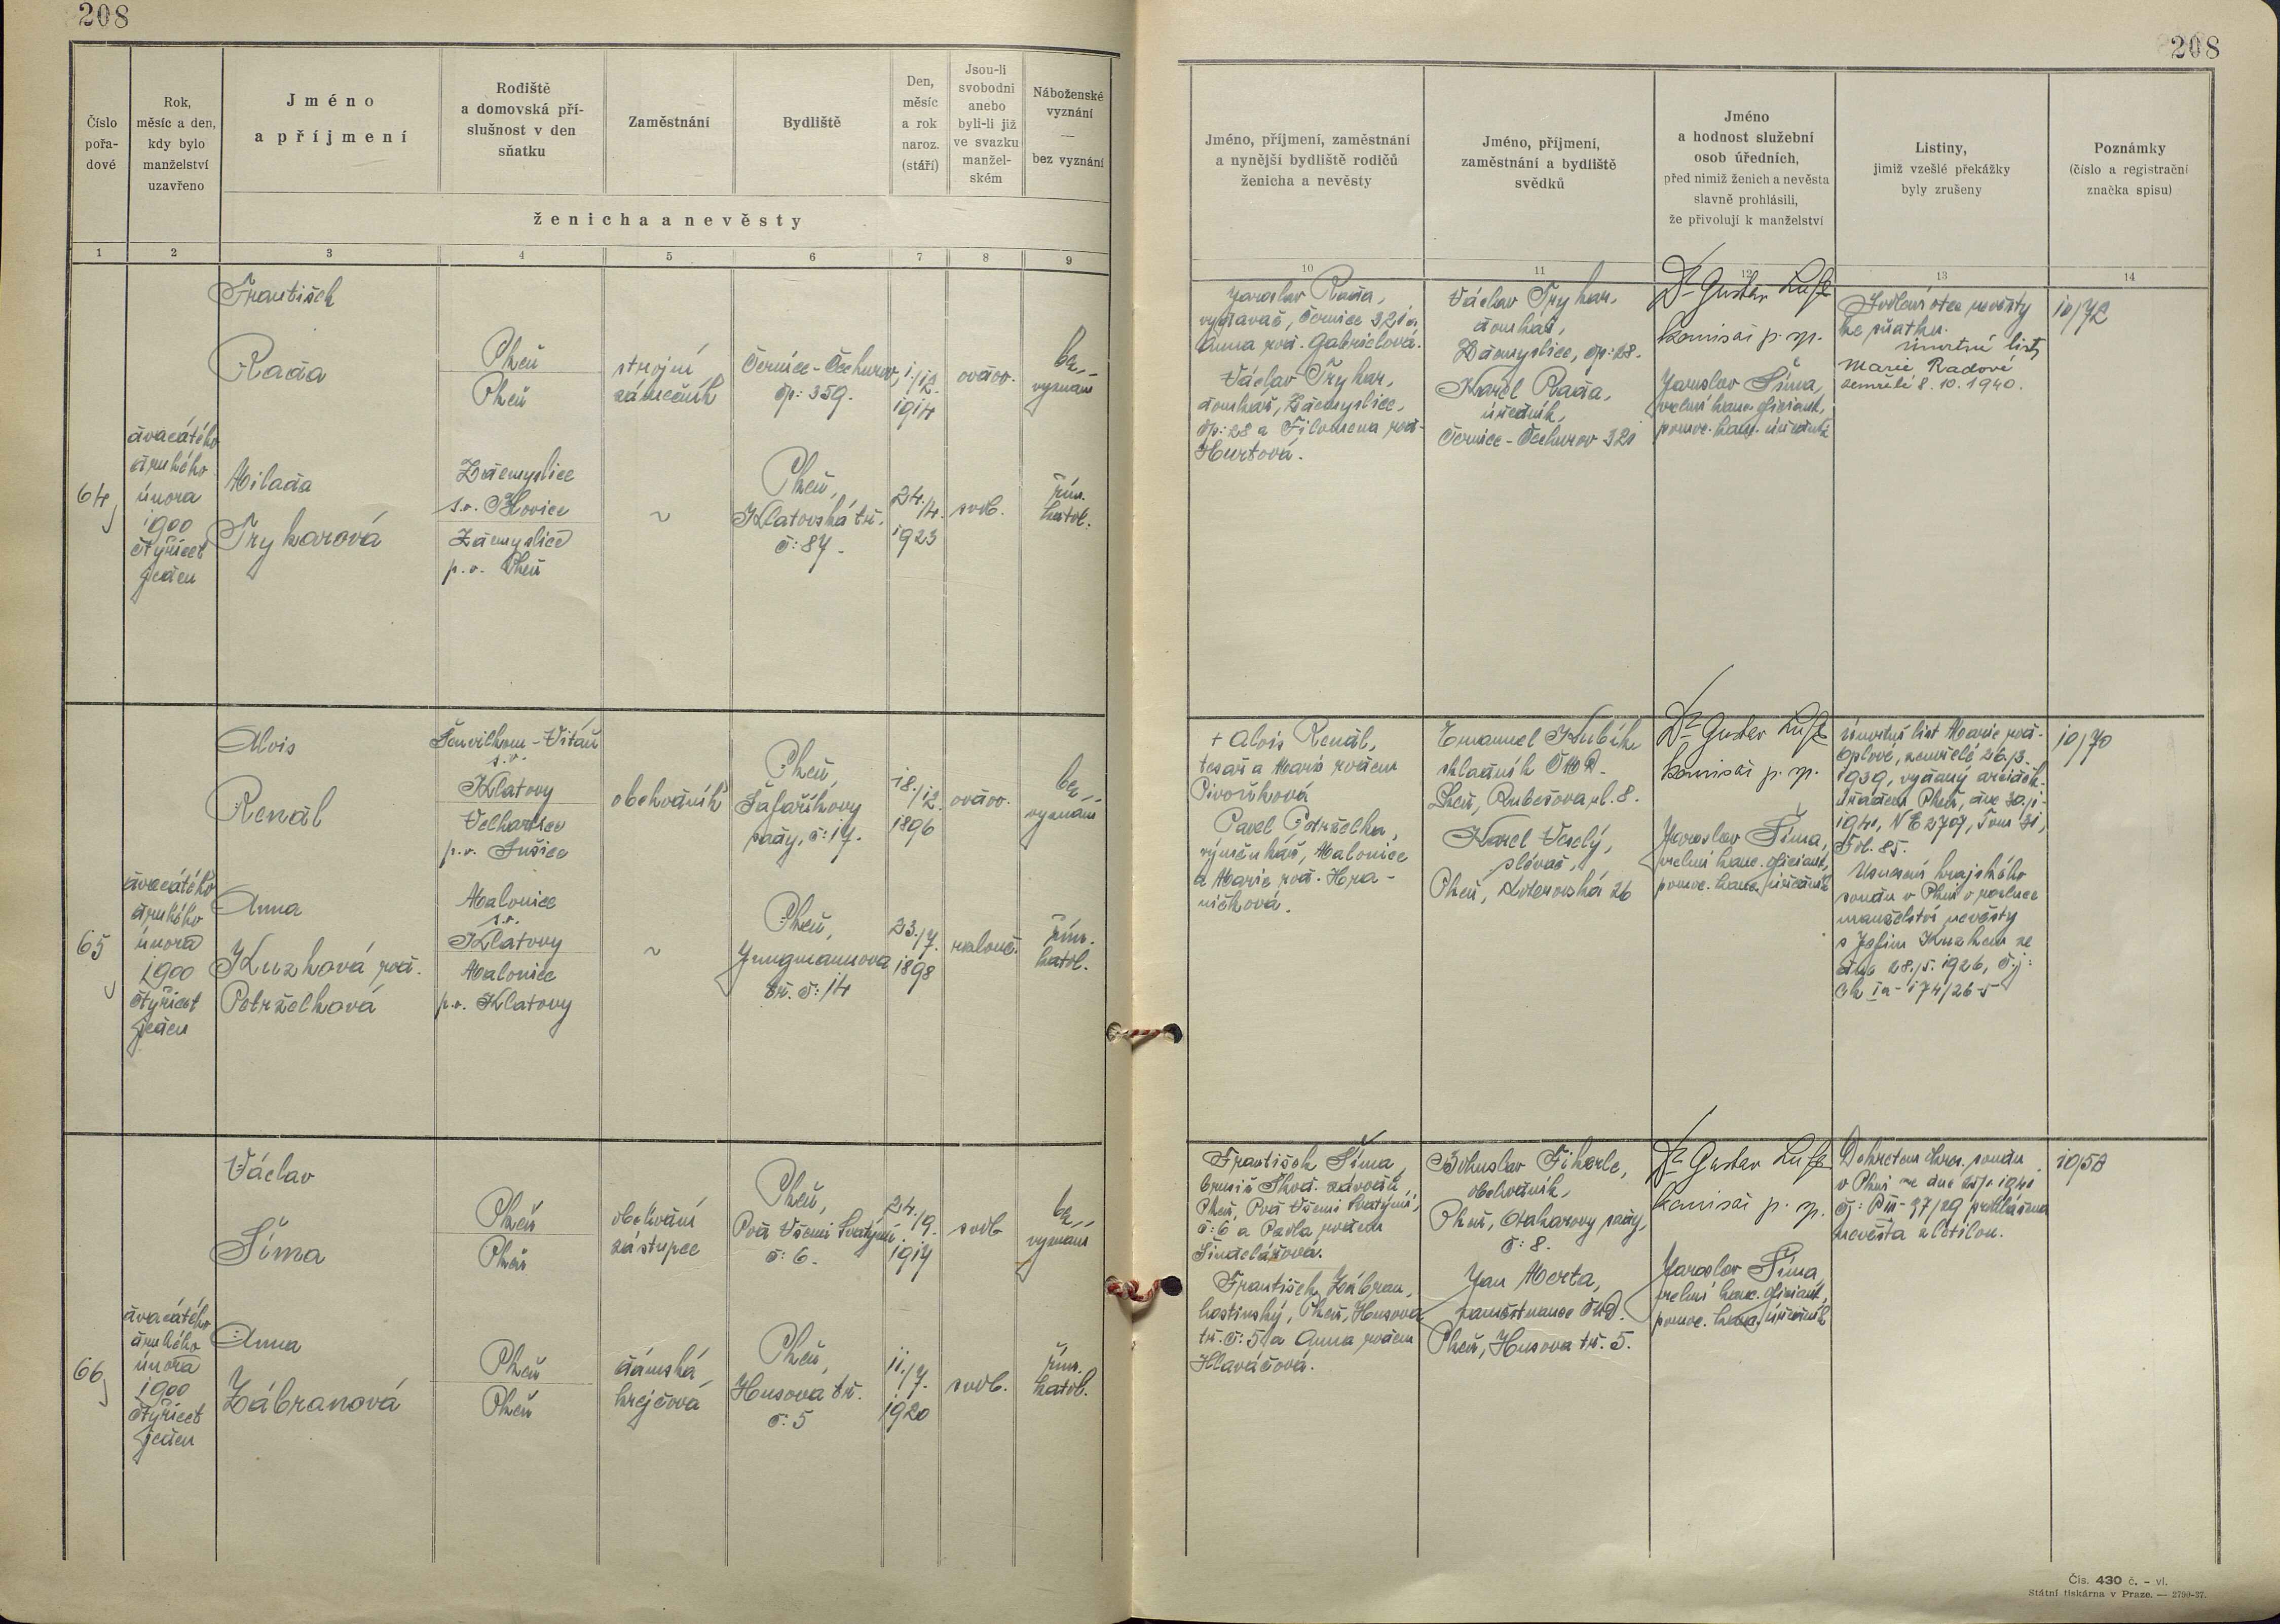 208
208
Číslo
pořa-
dové
Rok,
měsíc a den,
kdy bylo
manželství
uzavřeno
Jméno
a příjmení
Rodiště
a domovská pří-
slušnost v den
sňatku
Zaměstnání
Bydliště
Den,
měsíc
a rok
naroz.
(stáří)
Jsou-li
svobodni
anebo
byli-li již
ve svazku
manžel-
ském
Náboženské
vyznání
—
bez vyznání
ženicha a nevěsty
Jméno, příjmení, zaměstnání
a nynější bydliště rodičů
ženicha a nevěsty
Jméno, příjmení,
zaměstnání a bydliště
svědků
Jméno
a hodnost služební
osob úředních,
před nimiž ženich a nevěsta
slavně prohlásili,
že přivolují k manželství
Listiny,
jimiž vzešlé překážky
byly zrušeny
Poznámky
(číslo a registrační
značka spisu)
1 2 3 4 5 6 7 8 9
10 11 12 13 14
64
dvacátého
druhého
února
1900
čtyřicet
jeden
František
Rada
Plzeň
Plzeň
strojní
zámečník
Černice-Čechurov,
čp: 359.
1./12.
1914
ovdov.
bez
vyznání
Milada
Trykarová
Zdemyslice
s.o. Blovice
Zdemyslice
p.o. Plzeň
~
Plzeň,
Klatovská tř.
č: 87.
24./4.
1923
svob.
řím.
katol.
Jaroslav Rada,
vydavač, Černice 321 a
Anna roz. Gabrielová.
Václav Trykar,
domkář, Zdemyslice,
čp: 28 a Filomena roz.
Hurtová.
Václav Trykar,
domkář,
Zdemyslice, čp: 28.
Karel Rada,
úředník,
Černice-Čechurov 321
Dr Gustav
komisař p. sp.
Jaroslav Šíma,
kanc. oficiant,
pomoc. kanc. úředník
Svolení otce nevěsty
ke sňatku.
úmrtní list
Marie Radové
zemřelé 8. 10. 1940.
10/72
65
dvacátého
druhého
února
1900
čtyřicet
jeden
Alois
Renál
s.o.
Klatovy
p.o. Sušice
obchodník
Plzeň,
Šafaříkovy
sady, č: 17.
18./12.
1896
ovdov.
bez
vyznání
Anna
Kuzková roz.
Petrželková
Malonice
s.o.
Klatovy
Malonice
p.o. Klatovy
~
Plzeň,
Jungmannova
tř. č: 14
23./7.
1898
rozlouč.
řím.
katol.
+ Alois Renál,
tesař a Marie rozem
Pivoňková
Pavel Petrželka,
výměnkář, Malonice
a Marie roz. Hra-
ničková.
Emanuel Kubík
skladník ČMD.
Plzeň, Rubešova ul. 8.
Karel Veselý,
slévač,
Plzeň, 26
Dr Gustav
komisař p. sp.
Jaroslav Šíma,
kanc. oficiant,
pomoc. kanc. úředník
úmrtní list Marie roz.
Oplové, zemřelé 26./3.
1939, vydaný
Úřadem Plzeň, dne 30./1.
1941, N E 2707, Tom 31,
Fol. 85.
Usnesení krajského
soudu v Plzni o rozluce
manželství nevěsty
s Kuzkem ze
dne 28./5. 1926, č.j:
Ck Ia-174/26-5
10/70
66
dvacátého
druhého
února
1900
čtyřicet
jeden
Václav
Šíma
Plzeň
Plzeň
obchodní
zástupce
Plzeň,
Pod Všemi Svatými
č: 6.
24./9.
1917
svob.
bez
vyznání
Anna
Zábranová
Plzeň
Plzeň
dámská
krejčová
Plzeň,
Husova tř.
č: 5
11./7.
1920
svob.
řím.
katol.
František Šíma,
brusič Škod. závodů,
Plzeň, Pod Všemi Svatými,
č: 6 a Pavla rozem
Šindelářová.
František Zábran,
hostinský, Plzeň, Husova
tř. č: 5 a Anna rozem
Hlaváčová.
Bohuslav Fikerle,
obchodník,
Plzeň, Otakarovy sady,
č: 8.
Jan Merta,
zaměstnanec ČMD.
Plzeň, Husova tř. 5.
Dr Gustav
komisař p. sp.
Jaroslav Šíma,
kanc. oficiant,
pomoc. kanc. úředník
Dekretem okres. soudu
v Plzni ze dne 1941
37/29 prohlášena
nevěsta zletilou.
10/58
Čís. 430 č. - vl.
Státní tiskárna v Praze. — 2790-37.